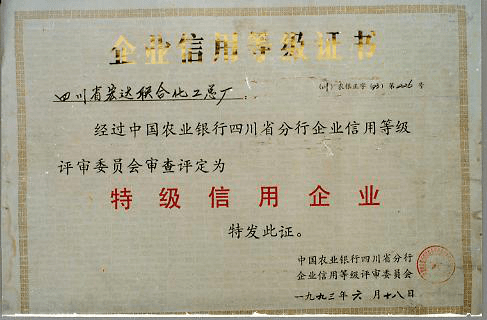 企业信用等级证书
四川省宏达联合化工总厂：
（川）农银正字（93）第226号
经过中国农业银行四川省分行企业信用等级
评审委员会审查评定为
特级信用企业
特发此证。
中国农业银行四川省分行
企业信用等级评审委员会
一九九三年六月十八日